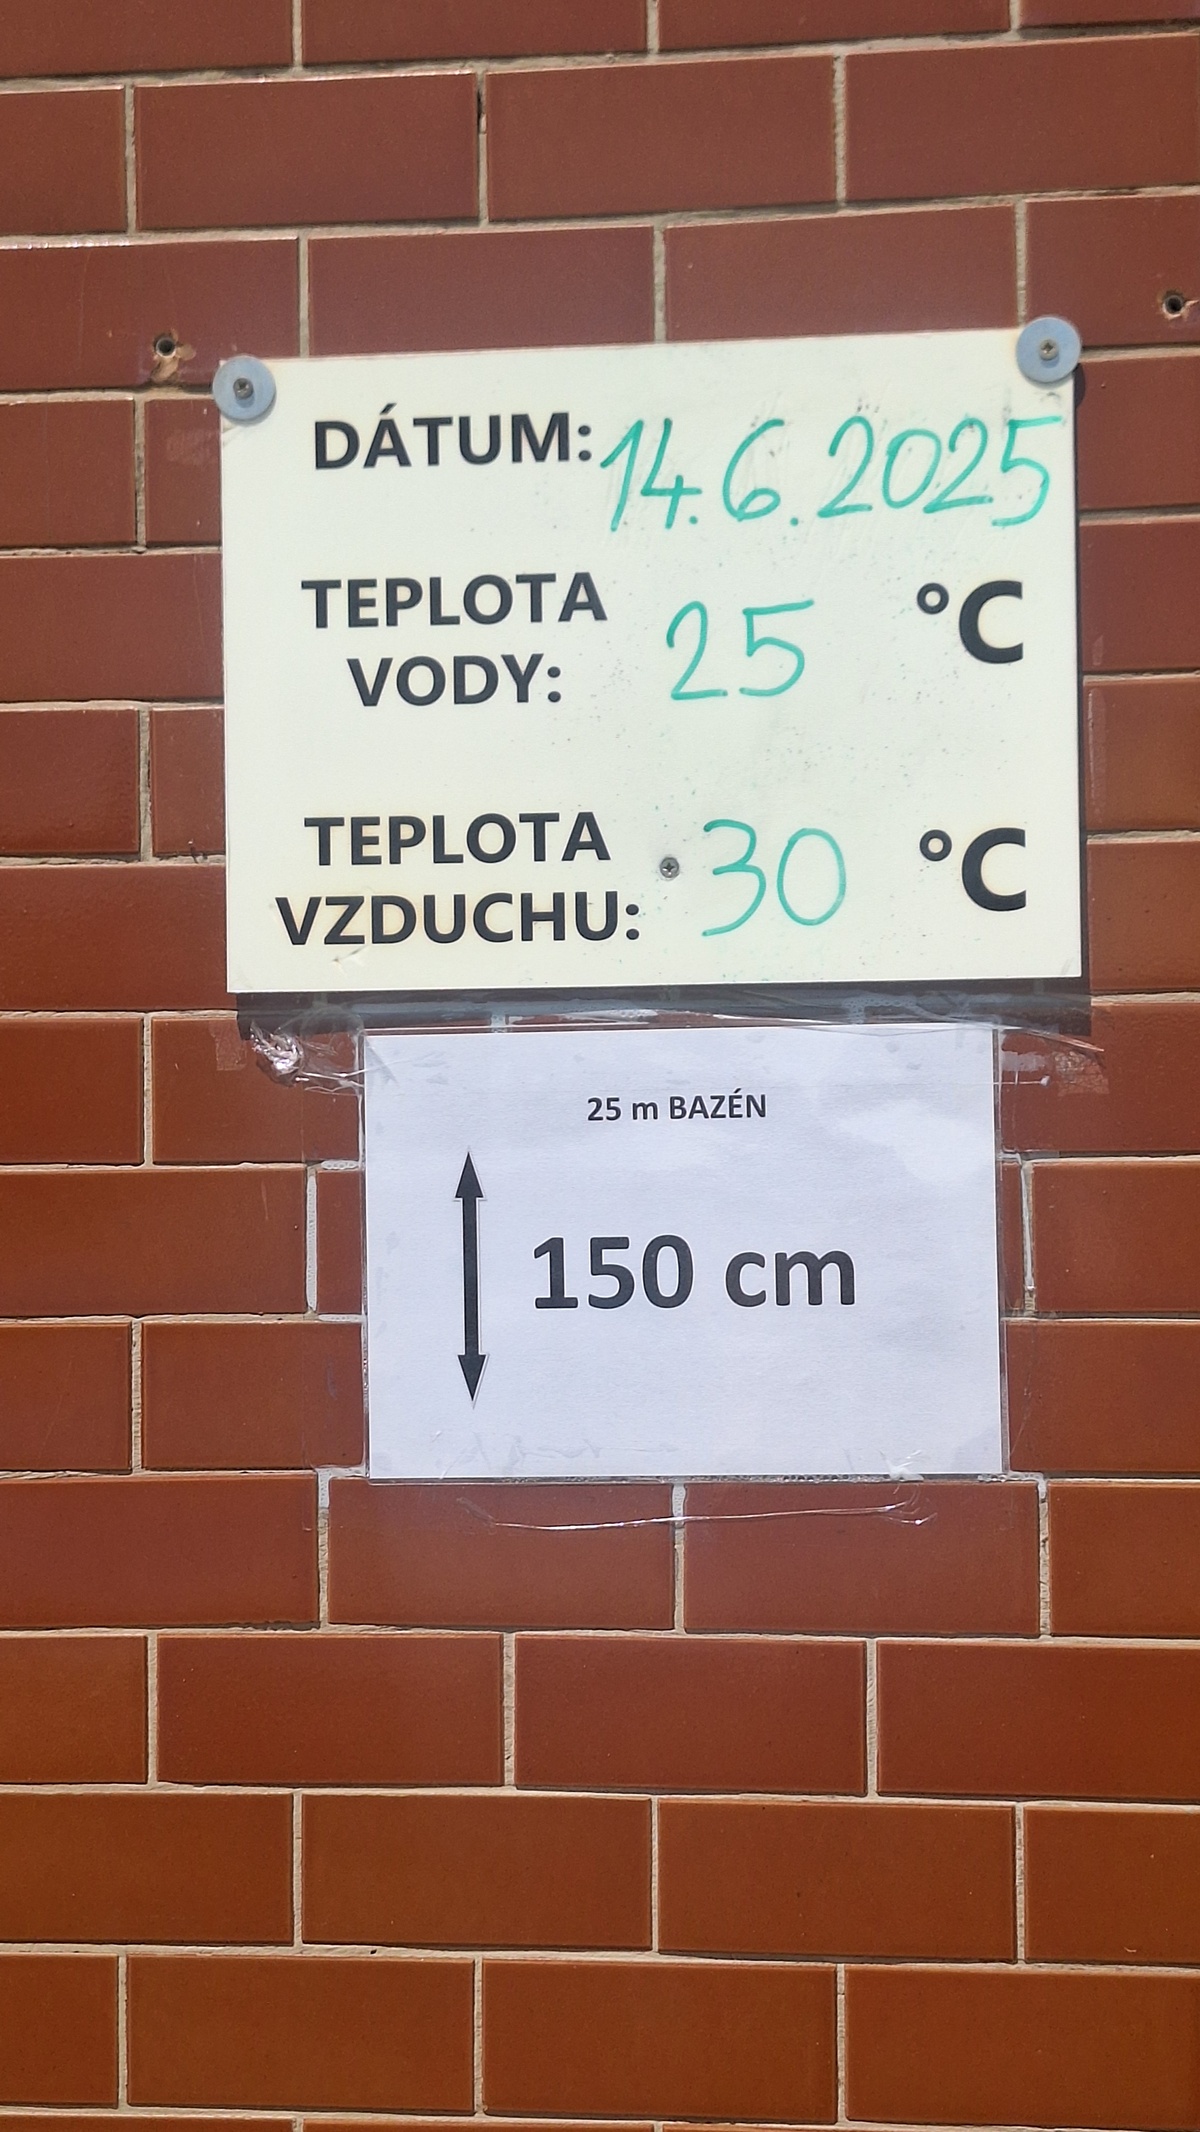 DÁTUM: 14.6.2025
TEPLOTA
VODY: 25 °C
TEPLOTA
VZDUCHU: 30 °C
25 m BAZÉN
150 cm